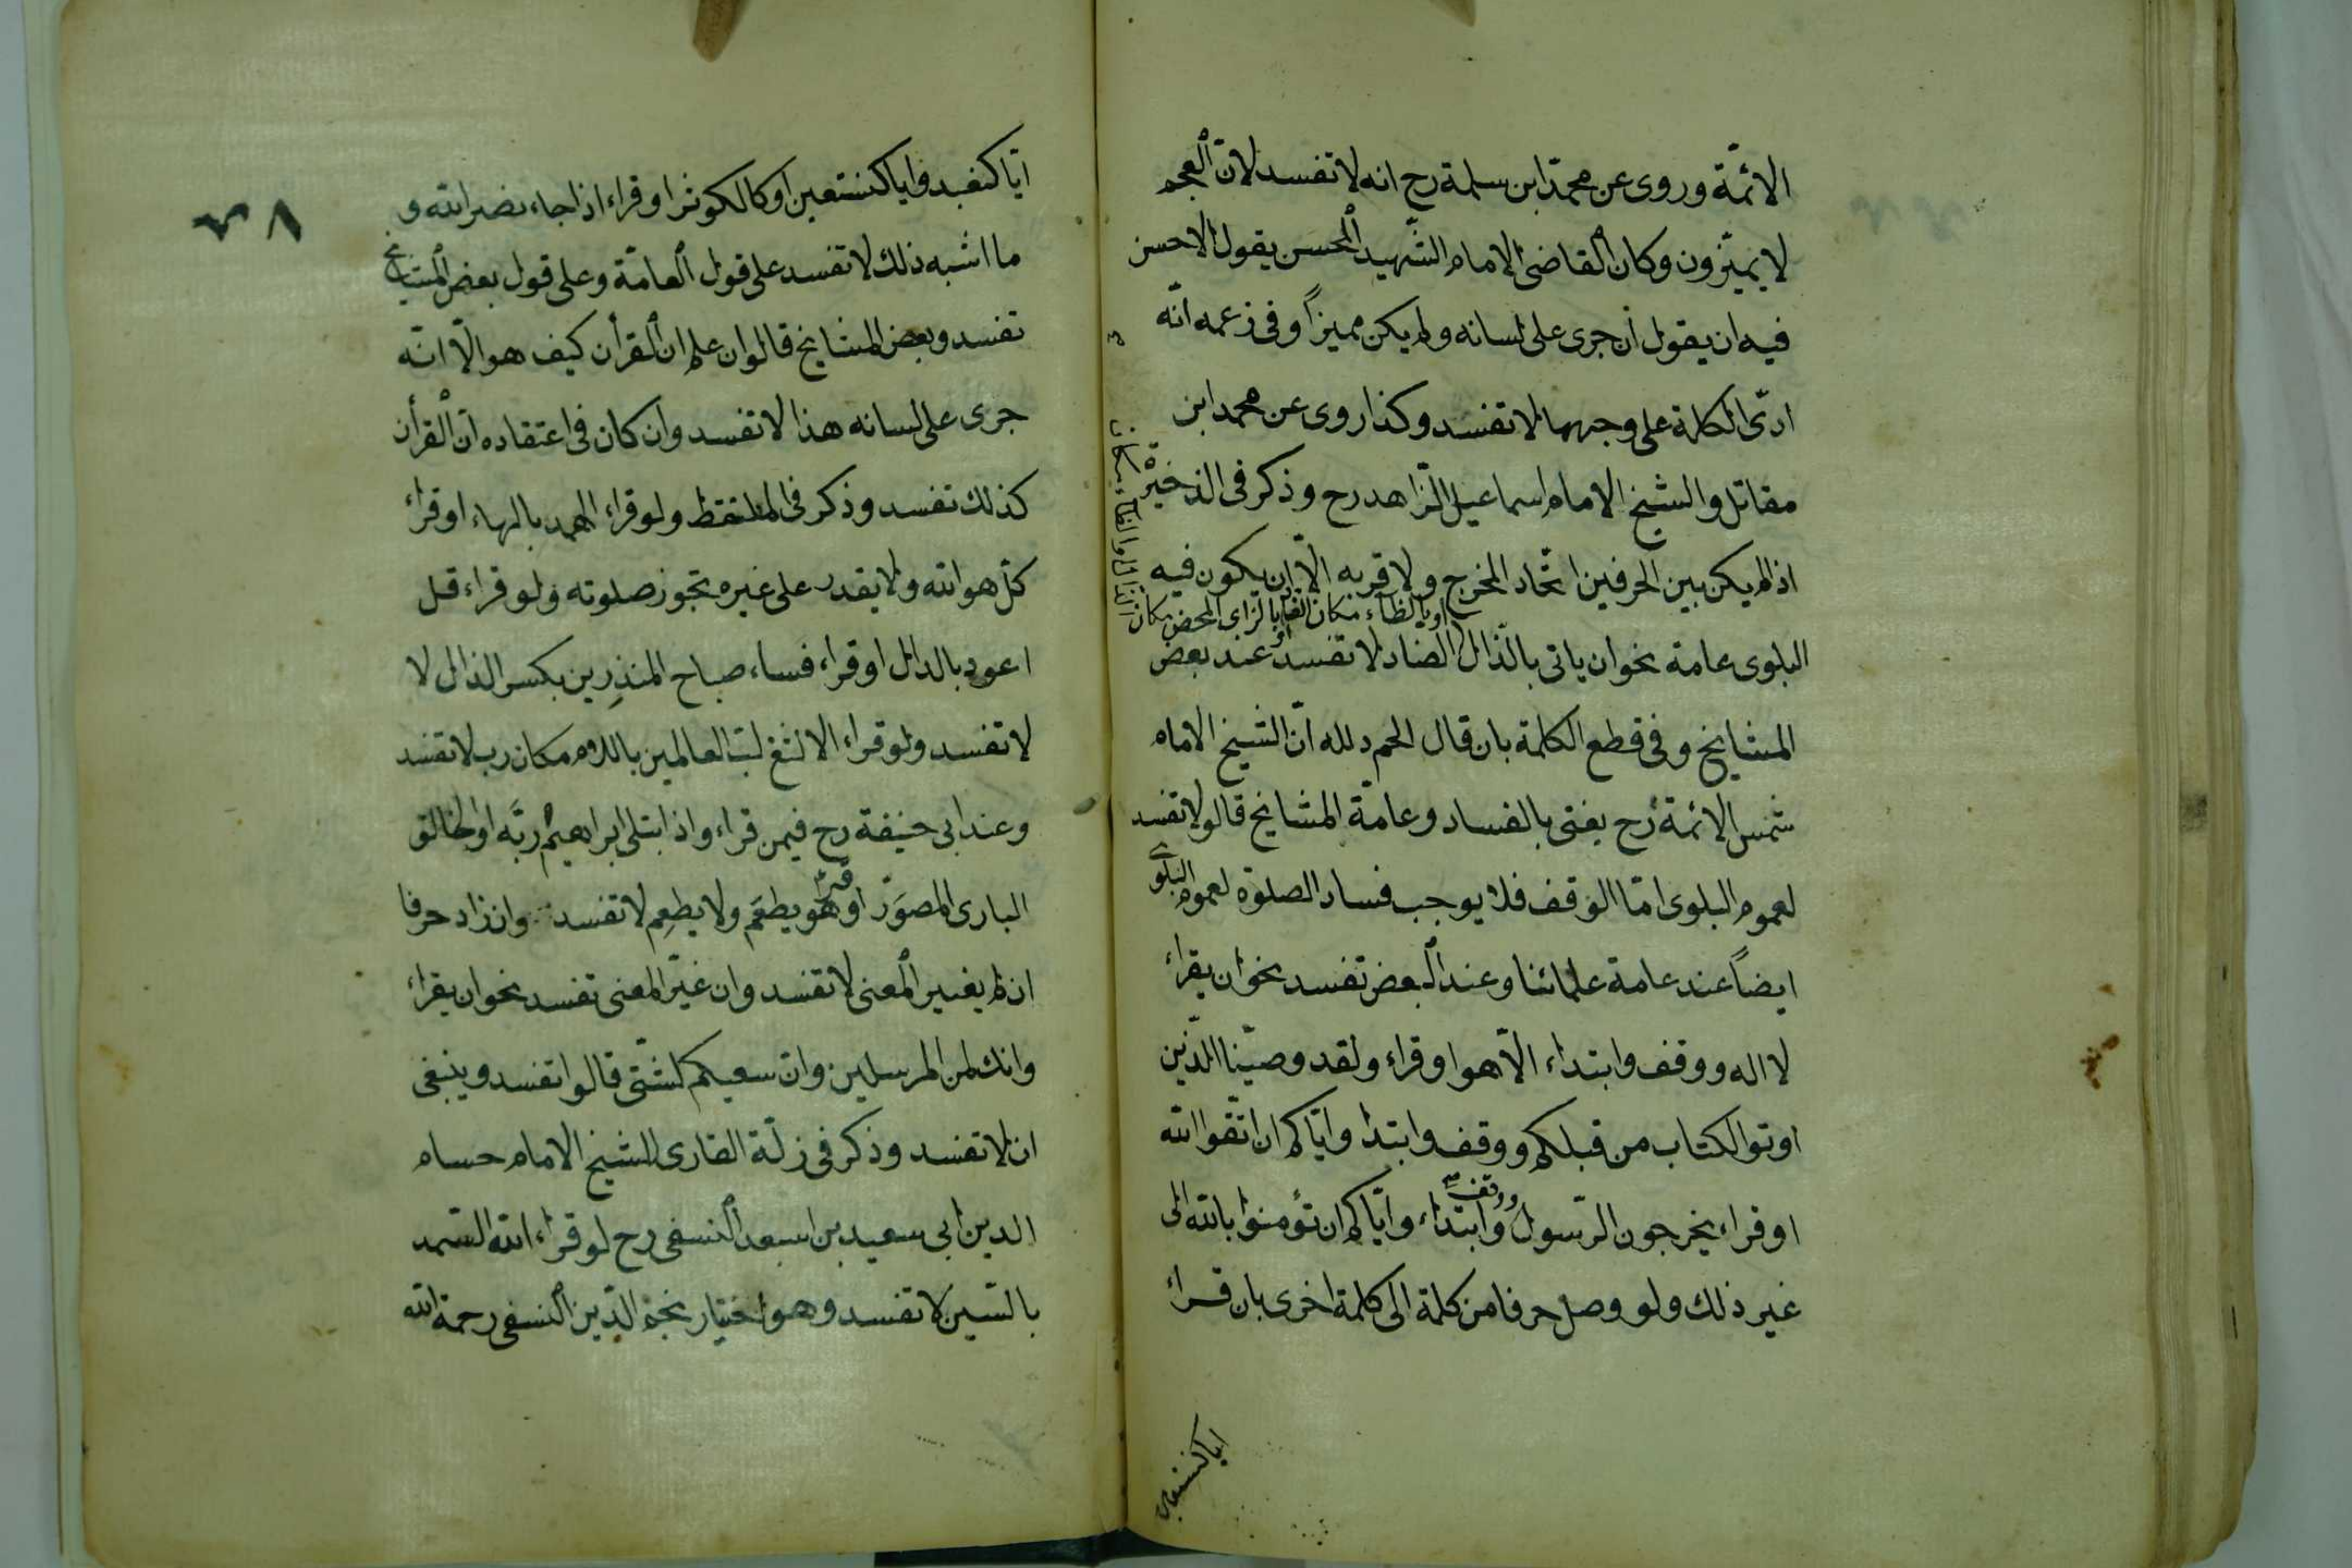 الائمّة وروى عن محمّد ابن سلمة رح انه لا تفسد لانّ العجم
لا يميّزون وكان القاضى الامام الشّهيد المحسن يقول الاحسن
فيه ان يقول ان جرى على لسانه ولم يكن مميزاً وفى زعمه انّه
ادّى الكلمة على وجهها لا تفسد وكذا روى عن محمد ابن
مقاتل والشيخ الامام اسماعيل الزّاهد رح وذكر فى الذخيرة
اذا لم يكن بين الحرفين اتّحاد المخرج ولا قربه الاّ ان يكون فيه
البلوى عامة نحو ان ياتى بالذّال الضاد لا تفسد عند بعض
او بالظاء مكان الضاد
او بالزاى المحض مكان الذال والظاء مكان
المشايخ وفى قطع الكلمة بان قال الحم د لله انّ الشيخ الامام
شمس الائمة رح يفتى بالفساد وعامّة المشايخ قالو لا تفسد
لعموم البلوى امّا الوقف فلا يوجب فساد الصلوة لعموم البلوى
ايضاً عند عامة علمائنا وعند البعض تفسد نحو ان يقراء
لا اله ووقف وابتداء الاّ هو او قراء ولقد وصيّنا الّذين
اوتوا الكتاب من قبلكم ووقف وابتدا وايّاكم ان اتّقوا الله
او قراء يخرجون الرّسول ووقف وابتداء وايّاكم ان تؤمنوا بالله الى
غير ذلك ولو وصل حرفا من كلمة الى كلمة اخرى بان قراء
اياكنعبد
٣٨
ايّا كنعبد وايا كنستعين او كا لكوثر او قراء اذا جاء نصر الله و
ما اشبه ذلك لا تفسد على قول العامّة وعلى قول بعض المشايخ
تفسد وبعض المشايخ قالوا ان علم ان القرأن كيف هو الاّ انّه
جرى على لسانه هذا لا تفسد وان كان فى اعتقاده انّ القرأن
كذلك تفسد وذكر فى الملتقط ولو قراء الهمد بالهاء او قراء
كلّ هو الله ولا يقدر على غيره تجوز صلوته ولو قراء قل
اعود بالدال او قراء فساء صباح المنذِرين بكسر الذال لا
لا تفسد ولو قراء الالثغ لبّ العالمين باللام مكان رب لا تفسد
وعند ابى حنيفة رح فيمن قراء واذ ابتلى ابراهيمُ ربَّه او الخالق
البارى المصوَّر او قراء وهو يطعَم ولا يطعِم لا تفسد وان زاد حرفا
ان لم يغيير المعنى لا تفسد وان غيّر المعنى تفسد نحو ان يقراء
وانك لمن المرسلين وانّ سعيكم لشتّى قالوا تفسد وينبغى
ان لا تفسد وذكر فى زلّة القارى للشيخ الامام حسام
الدين ابى سعيد بن اسعد النسفى رح لو قراء الله السّمد
بالسّين لا تفسد وهو اختيار نجم الدّين النسفى رحمة الله